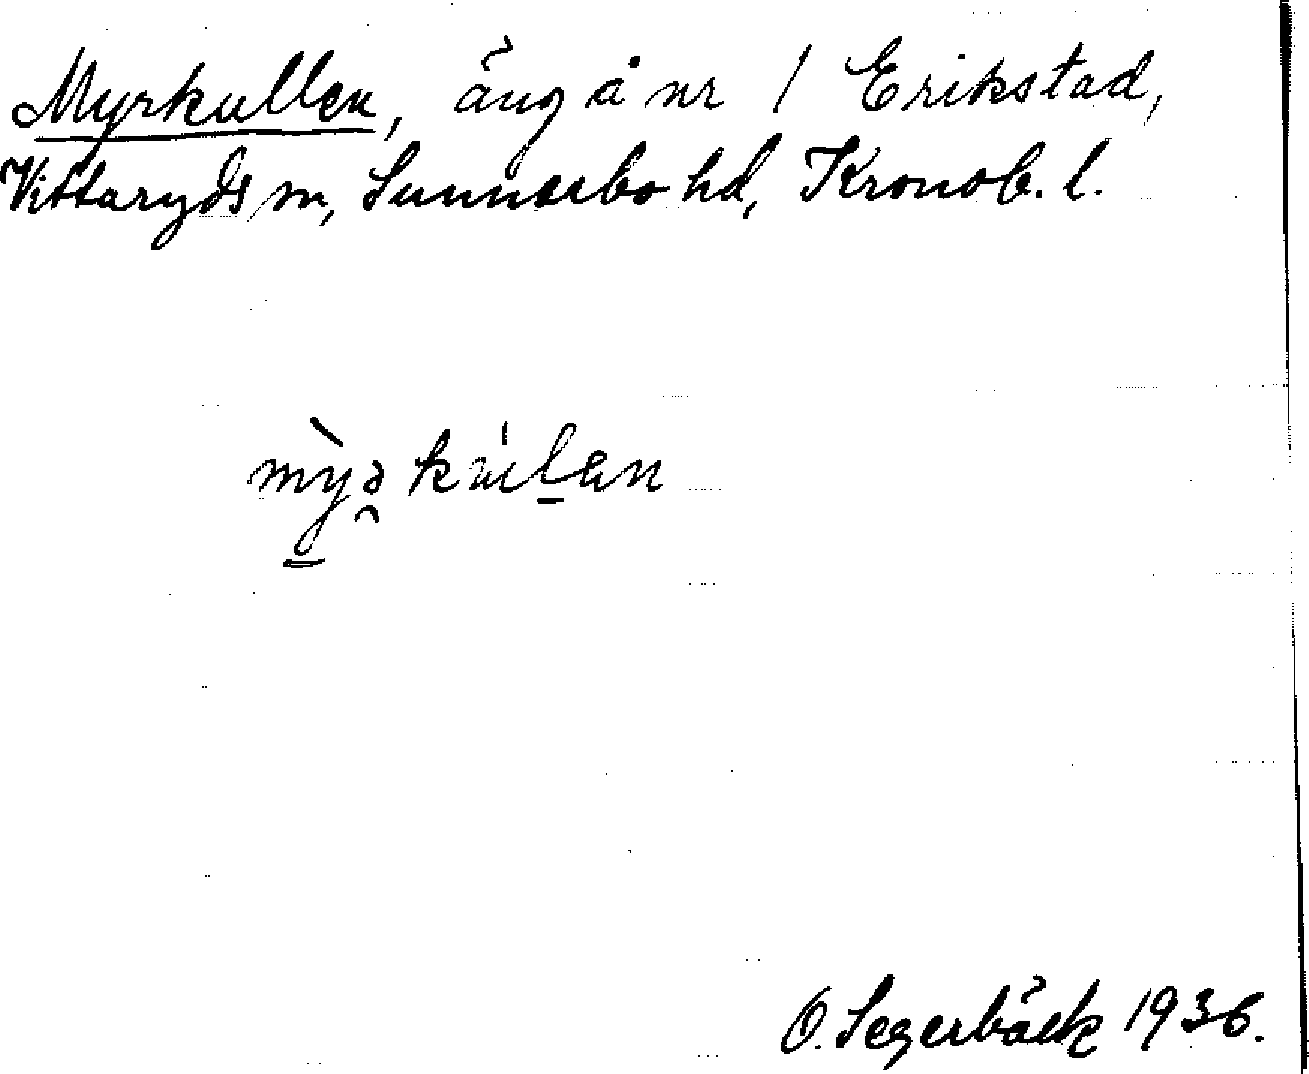 Myrkullen, äng å nr 1 Erikstad,
Vittaryds sn, Sunnerbo hd, Kronob. l.
O. Segerbäck 1936.